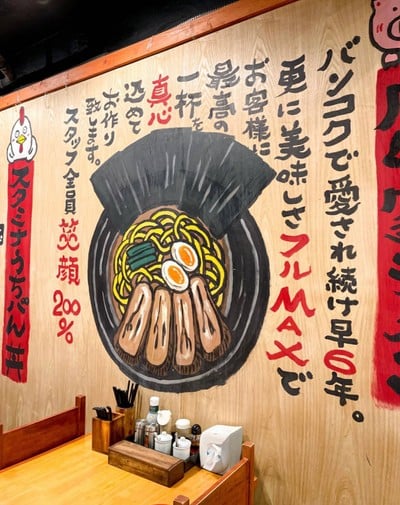 バンコクで愛され続け早6年。
更に美味しさフルMAXで
お客様に
最高の
一杯を
真心
込めて
お作り
致します。
スタッフ全員笑顔200%
スタミナうちぱん丼